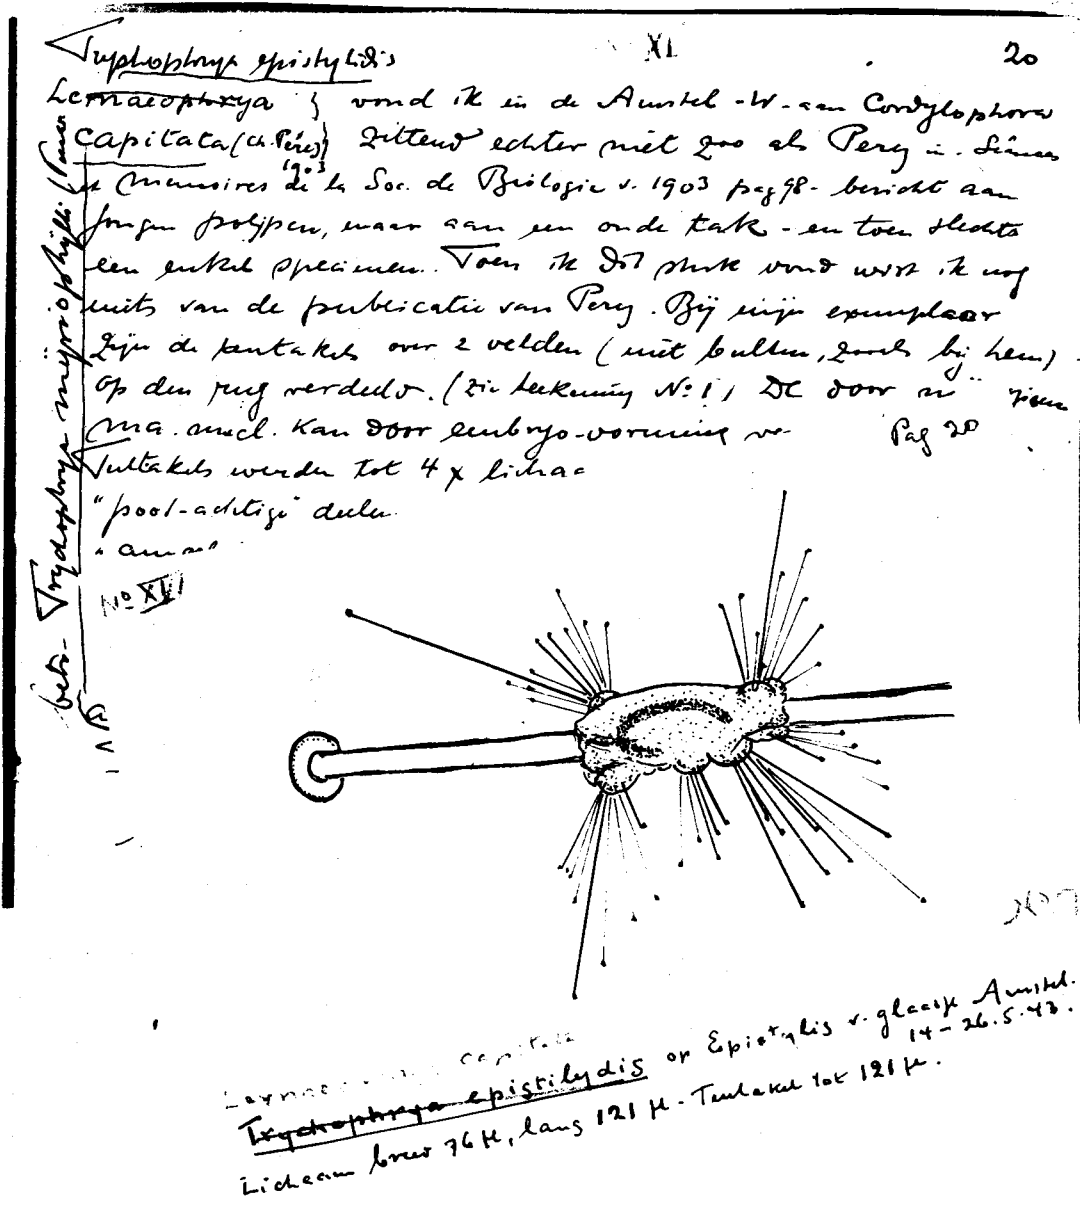 Tryphophrya epistylidis
XI
20
Lernaeophrya } vond ik in de Amstel - W. aan Cordylophora
capitata (Ch. Pérez) zittend echter niet zoo als Perez in
1903
et Memoires de la Soc. de Biologie v. 1903 pag 98 - bericht aan
jonge polijpen, maar aan een oude tak - en toen slechts
een enkel specimen. Toen ik dit stuk vond wist ik nog
niets van de publicatie van Perez. Bij mijn exemplaar
zijn de tentakels over 2 velden (niet bulten, zooals bij hem)
op den rug verdeeld. (Zie teekening No. 1) De door
ma. nucl. kan door embryo-vorming
Pag 20
Tentakels werden tot 4 x
"poot-achtige" deelen
betr. Trychophrya
No XI
capitata
Trychophrya epistilydis op Epistylis v. glaasje Amstel.
14 - 26.5.43.
Lichaam breed 76 µ, lang 121 µ - Tentakel tot 121 µ.